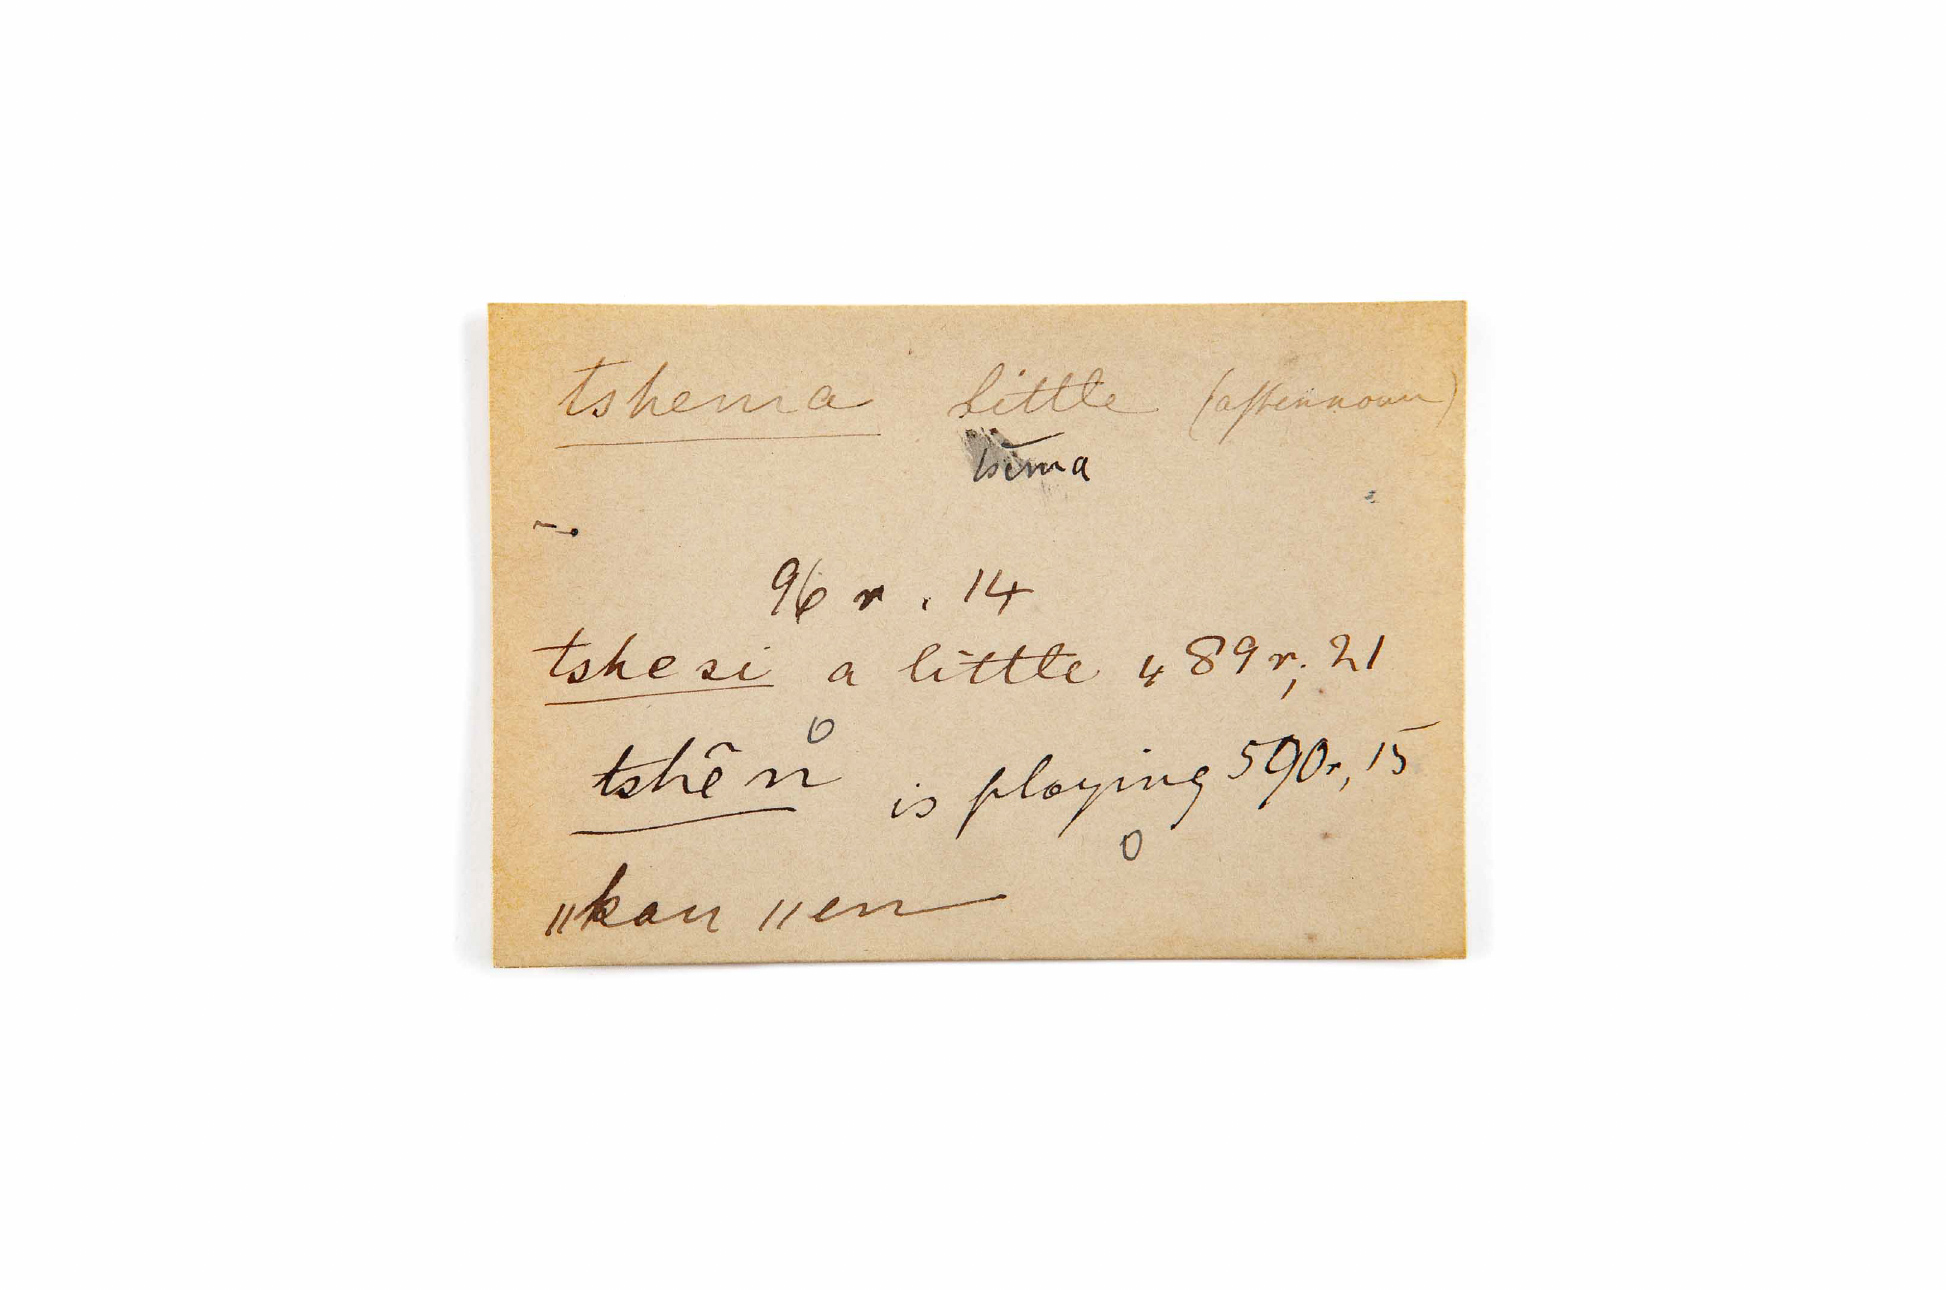 tshema little (afternoun)
tsema
96 r. 14
tshesi a little 489r, 21
tshên is playing 590r, 15
"kau "en